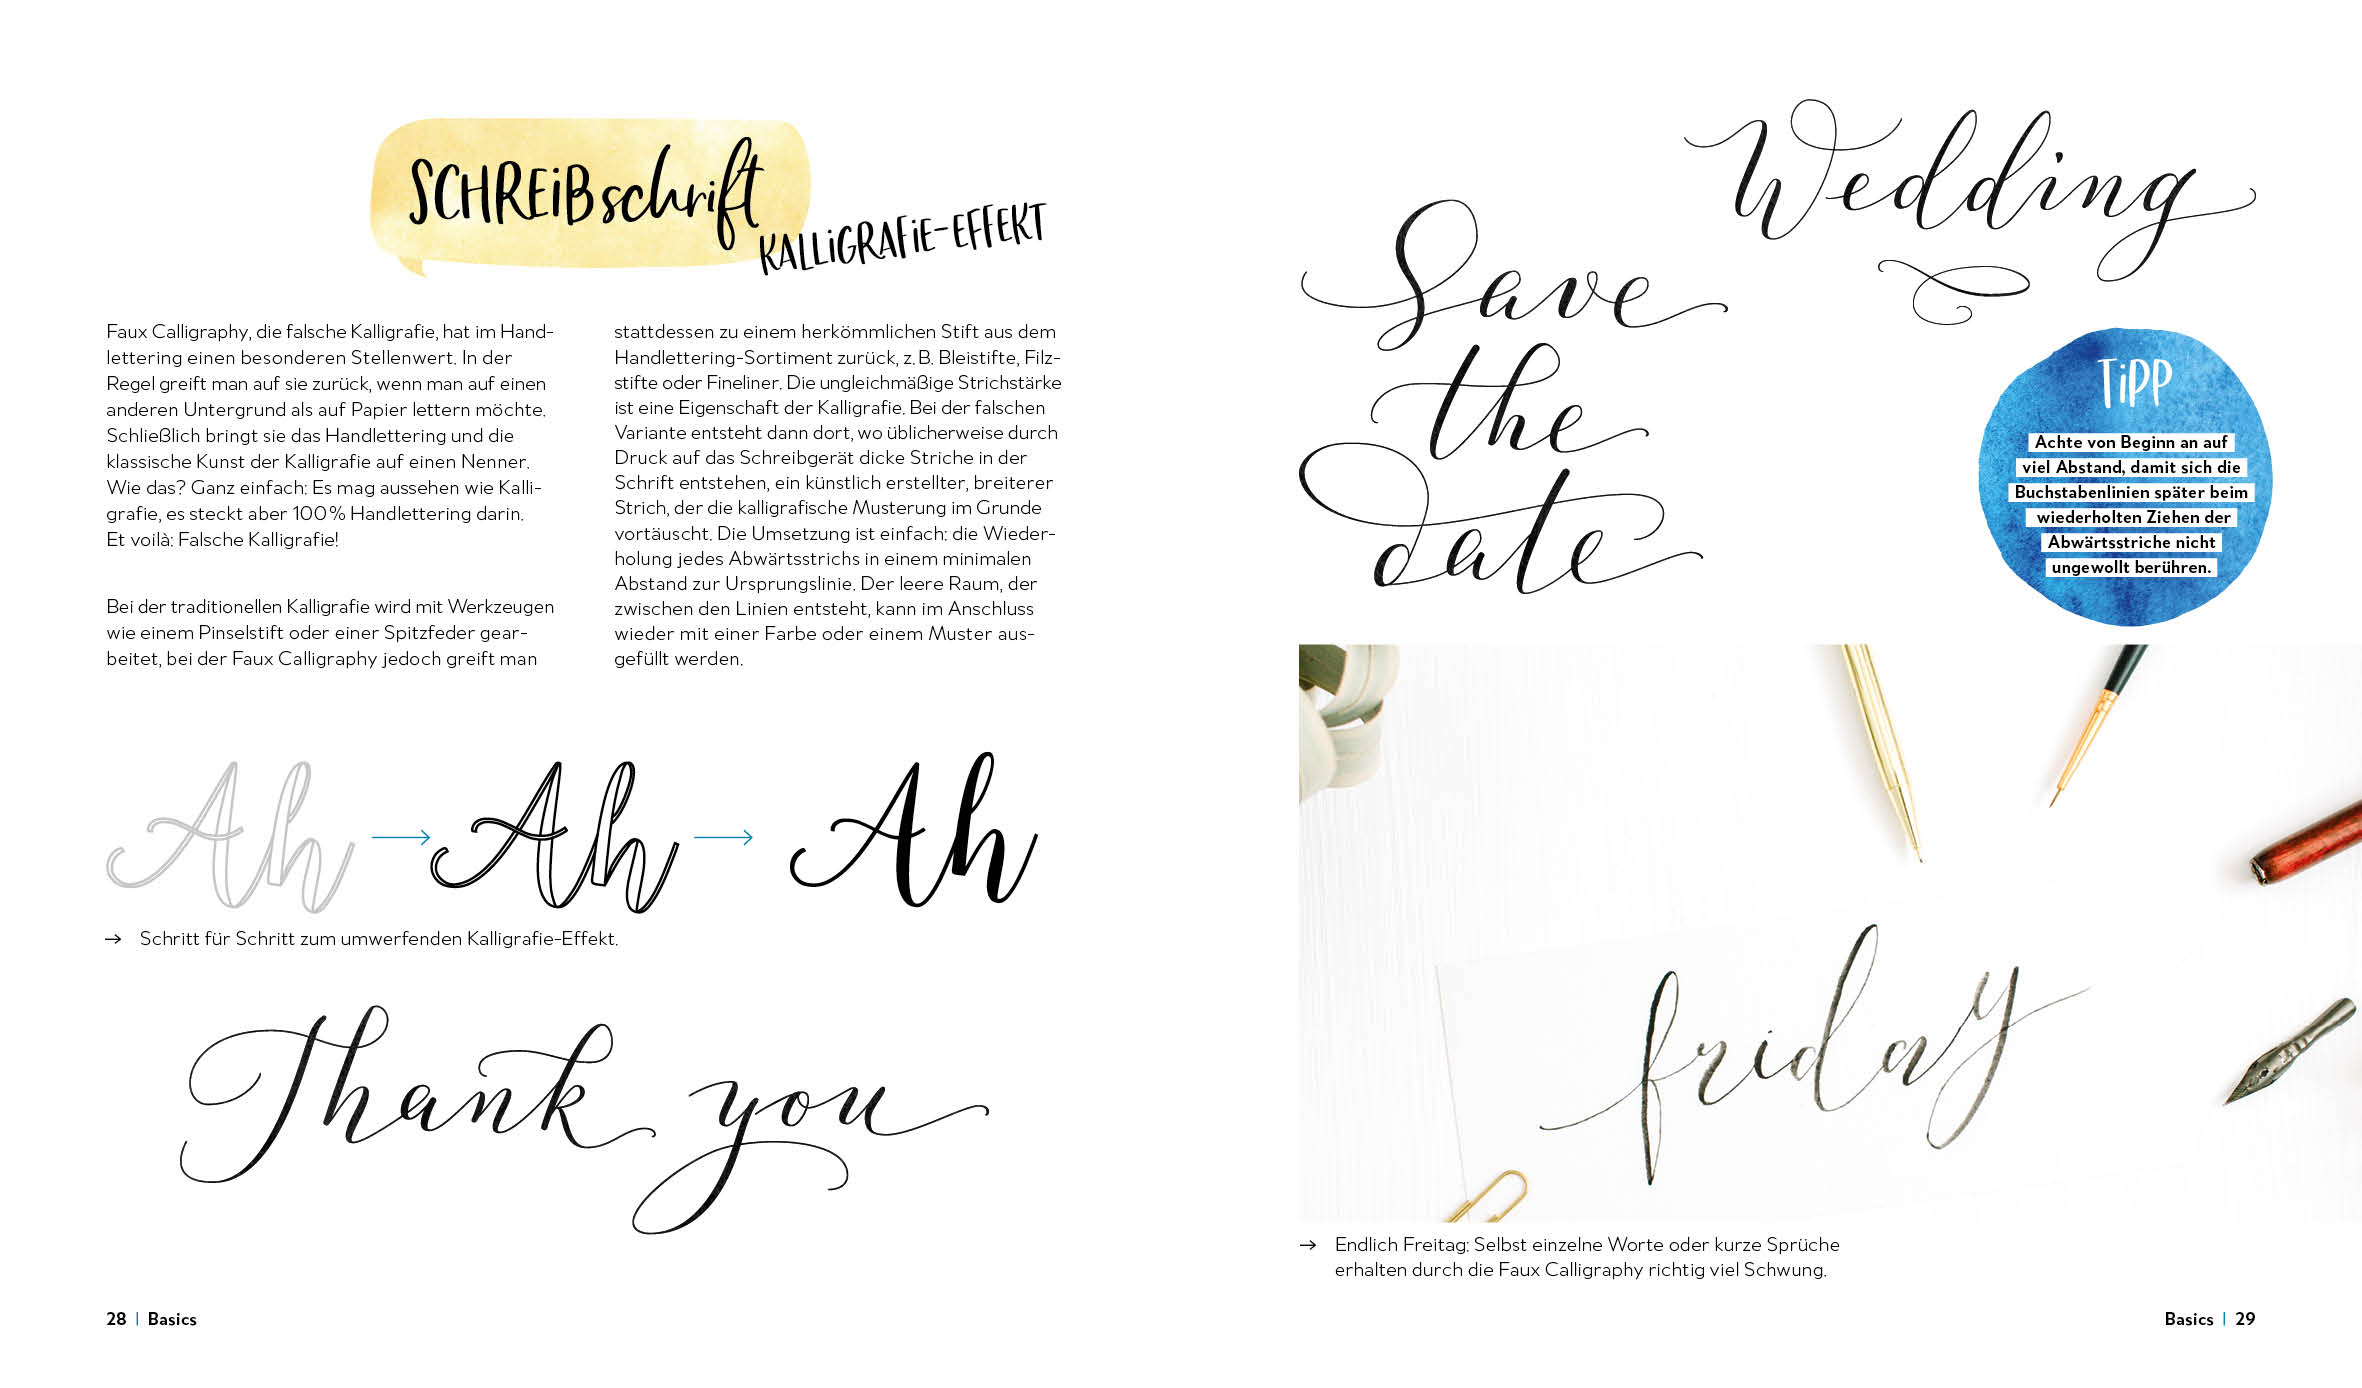 SCHREiBschrift
KALLiGRAFiE-EFFEKT
Faux Calligraphy, die falsche Kalligrafie, hat im Hand-
lettering einen besonderen Stellenwert. In der
Regel greift man auf sie zurück, wenn man auf einen
anderen Untergrund als auf Papier lettern möchte.
Schließlich bringt sie das Handlettering und die
klassische Kunst der Kalligrafie auf einen Nenner.
Wie das? Ganz einfach: Es mag aussehen wie Kalli-
grafie, es steckt aber 100 % Handlettering darin.
Et voilà: Falsche Kalligrafie!
Bei der traditionellen Kalligrafie wird mit Werkzeugen
wie einem Pinselstift oder einer Spitzfeder gear-
beitet, bei der Faux Calligraphy jedoch greift man
stattdessen zu einem herkömmlichen Stift aus dem
Handlettering-Sortiment zurück, z. B. Bleistifte, Filz-
stifte oder Fineliner. Die ungleichmäßige Strichstärke
ist eine Eigenschaft der Kalligrafie. Bei der falschen
Variante entsteht dann dort, wo üblicherweise durch
Druck auf das Schreibgerät dicke Striche in der
Schrift entstehen, ein künstlich erstellter, breiterer
Strich, der die kalligrafische Musterung im Grunde
vortäuscht. Die Umsetzung ist einfach: die Wieder-
holung jedes Abwärtsstrichs in einem minimalen
Abstand zur Ursprungslinie. Der leere Raum, der
zwischen den Linien entsteht, kann im Anschluss
wieder mit einer Farbe oder einem Muster aus-
gefüllt werden.
Ah → Ah → Ah
→ Schritt für Schritt zum umwerfenden Kalligrafie-Effekt.
Thank you
28 | Basics
Wedding
Save
the
date
TiPP
Achte von Beginn an auf
viel Abstand, damit sich die
Buchstabenlinien später beim
wiederholten Ziehen der
Abwärtsstriche nicht
ungewollt berühren.
friday
→ Endlich Freitag: Selbst einzelne Worte oder kurze Sprüche
erhalten durch die Faux Calligraphy richtig viel Schwung.
Basics | 29